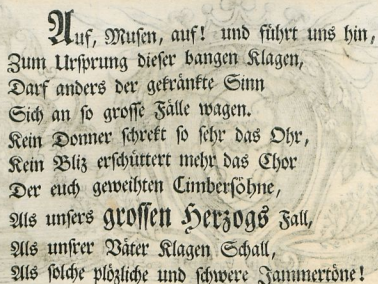 Auf, Musen, auf! und führt uns hin,
Zum Ursprung dieser bangen Klagen,
Darf anders der gekränkte Sinn
Sich an so grosse Fälle wagen.
Kein Donner schrekt so sehr das Ohr,
Kein Bliz erschüttert mehr das Chor
Der euch geweihten Cimbersöhne,
Als unsers grossen Herzogs Fall,
Als unsrer Väter Klagen Schall,
Als solche plözliche und schwere Jammertöne!